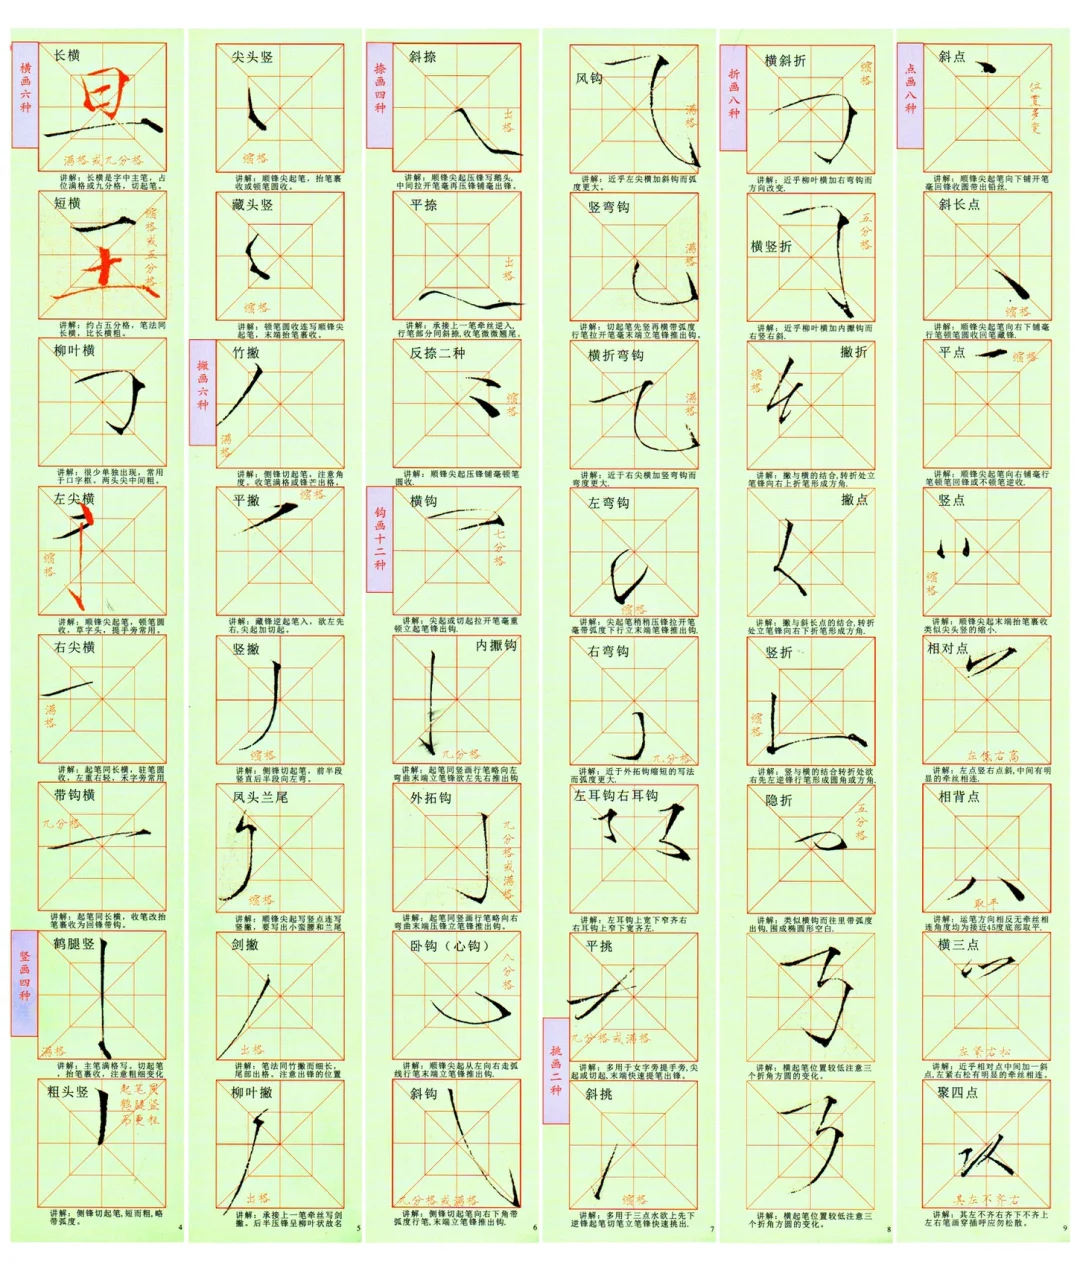 横画六种
长横
满格或九分格
讲解：长横是字中主笔，占
位满格或九分格，切起笔。
短横
缩格或五分格
讲解：约占五分格，笔法同
长横，比长横粗。
柳叶横
讲解：很少单独出现，常用
于口字框。两头尖中间粗。
左尖横
缩格
讲解：顺锋尖起笔，顿笔圆
收，草字头，提手旁常用。
右尖横
满格
讲解：起笔同长横，驻笔圆
收，左重右轻，禾字旁常用
带钩横
九分格
讲解：起笔同长横，收笔改抬
笔裹收为回锋带钩。
竖画四种
鹤腿竖
满格
讲解：主笔满格写。切起笔
，抬笔裹收，注意粗细变化
粗头竖
讲解：侧锋切起笔,短而粗,略
带弧度。
4
尖头竖
缩格
讲解：顺锋尖起笔，抬笔裹
收或顿笔圆收。
藏头竖
缩格
讲解：顿笔圆收连写顺锋尖
起笔，末端抬笔裹收。
撇画六种
竹撇
满格
讲解：侧锋切起笔，注意角
度。收笔满格或锋芒出格。
平撇
缩格
讲解：藏锋逆起笔入，欲左先
右,尖起加切起。
竖撇
缩格
讲解：侧锋切起笔，前半段
竖直后半段向左弯。
凤头兰尾
缩格
讲解：顺锋尖起写竖点连写
竖撇，要写出小蛮腰和兰尾
剑撇
出格
讲解：笔法同竹撇而细长，
尾部出格。注意出锋的位置
柳叶撇
出格
讲解：承接上一笔牵丝写剑
撇。后半压锋呈柳叶状故名
5
捺画四种
斜捺
出格
讲解：顺锋尖起压锋写鹅头,
中间拉开笔毫再压锋铺毫出锋。
平捺
出格
讲解：承接上一笔牵丝逆入,
行笔部分同斜捺,收笔微微翘尾。
反捺二种
缩格
讲解：顺锋尖起压锋铺毫顿笔
圆收。
钩画十二种
横钩
七分格
讲解：尖起或切起拉开笔毫重
顿立起笔锋出钩.
内擫钩
九分格
讲解：起笔同竖画行笔略向左
弯曲末端立笔锋欲左先右推出钩
外拓钩
九分格或满格
讲解：起笔同竖画行笔略向右
弯曲末端压锋立笔锋推出钩.
卧钩（心钩）
八分格
讲解：顺锋尖起从左向右走弧
线行笔末端立笔锋推出钩.
斜钩
九分格或满格
讲解：侧锋切起笔向右下角带
弧度行笔,末端立笔锋推出钩.
6
风钩
满格
讲解：近乎左尖横加斜钩而弧
度更大。
竖弯钩
满格
讲解：切起笔先竖再横带弧度
行笔拉开笔毫末端立笔锋推出钩。
横折弯钩
满格
讲解：近于右尖横加竖弯钩而
弯度更大.
左弯钩
缩格
讲解：尖起笔稍稍压锋拉开笔
毫带弧度下行立末端笔锋推出钩.
右弯钩
九分格
讲解：近于外拓钩缩短的写法
而弧度更大。
左耳钩右耳钩
讲解：左耳钩上宽下窄齐右
右耳钩上窄下宽齐左.
平挑
九分格或满格
挑画二种
讲解：多用于女字旁提手旁,尖
起或切起,末端快速提笔出锋。
斜挑
缩格
讲解：多用于三点水欲上先下
逆锋起笔切笔立笔锋快速挑出.
7
折画八种
横斜折
缩格
讲解：近乎柳叶横加右弯钩而
方向改变.
横竖折
五分格
讲解：近乎柳叶横加内擫钩而
右竖右斜.
撇折
缩格
讲解：撇与横的结合,转折处立
笔锋向右上折笔形成方角.
撇点
讲解：撇与斜长点的结合,转折
处立笔锋向右下折笔形成方角.
竖折
缩格
讲解：竖与横的结合转折处欲
右先左逆锋行笔形成圆角或方角.
隐折
五分格
讲解：类似横钩而往里带弧度
出钩,围成椭圆形空白.
讲解：横起笔位置较低注意三
个折角方圆的变化。
讲解：横起笔位置较低注意三
个折角方圆的变化。
8
点画八种
斜点
讲解：顺锋尖起笔向下铺开笔
毫回锋收圆带出铅丝。
斜长点
缩格
讲解：顺锋尖起笔向右下铺毫
行笔顿笔圆收回笔藏锋.
平点
缩格
讲解：顺锋尖起笔向右铺毫行
笔顿笔回锋或不顿笔逆收.
竖点
缩格
讲解：顺锋尖起末端抬笔裹收
类似尖头竖的缩小.
相对点
左低右高
讲解：左点竖右点斜,中间有明
显的牵丝相连.
相背点
取平
讲解：运笔方向相反无牵丝相
连角度均为接近45度底部取平.
横三点
左紧右松
讲解：近乎相对点中间加一斜
点,左紧右松有明显的牵丝相连。
聚四点
其左不齐右
讲解：其左不齐右齐下不齐上
左右笔画穿插呼应勿松散。
9